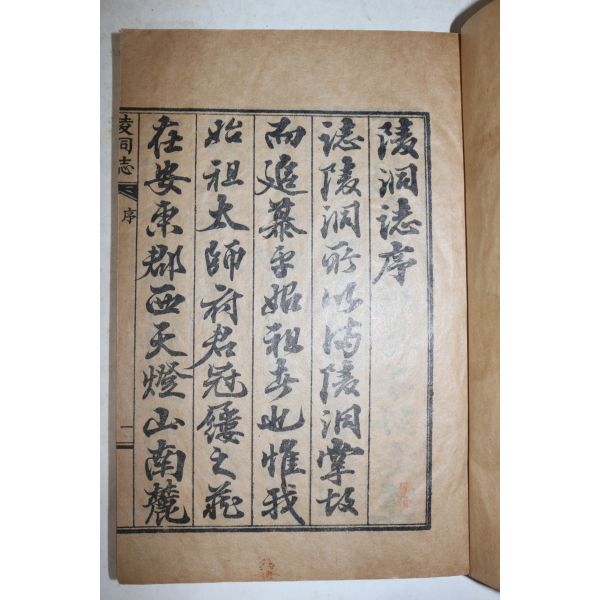 陵洞誌序
誌陵洞所以備陵洞掌故
而追慕乎始祖者也惟我
始祖太師府君冠綏之藏
在安東郡西天燈山南麓
陵洞志
序
一